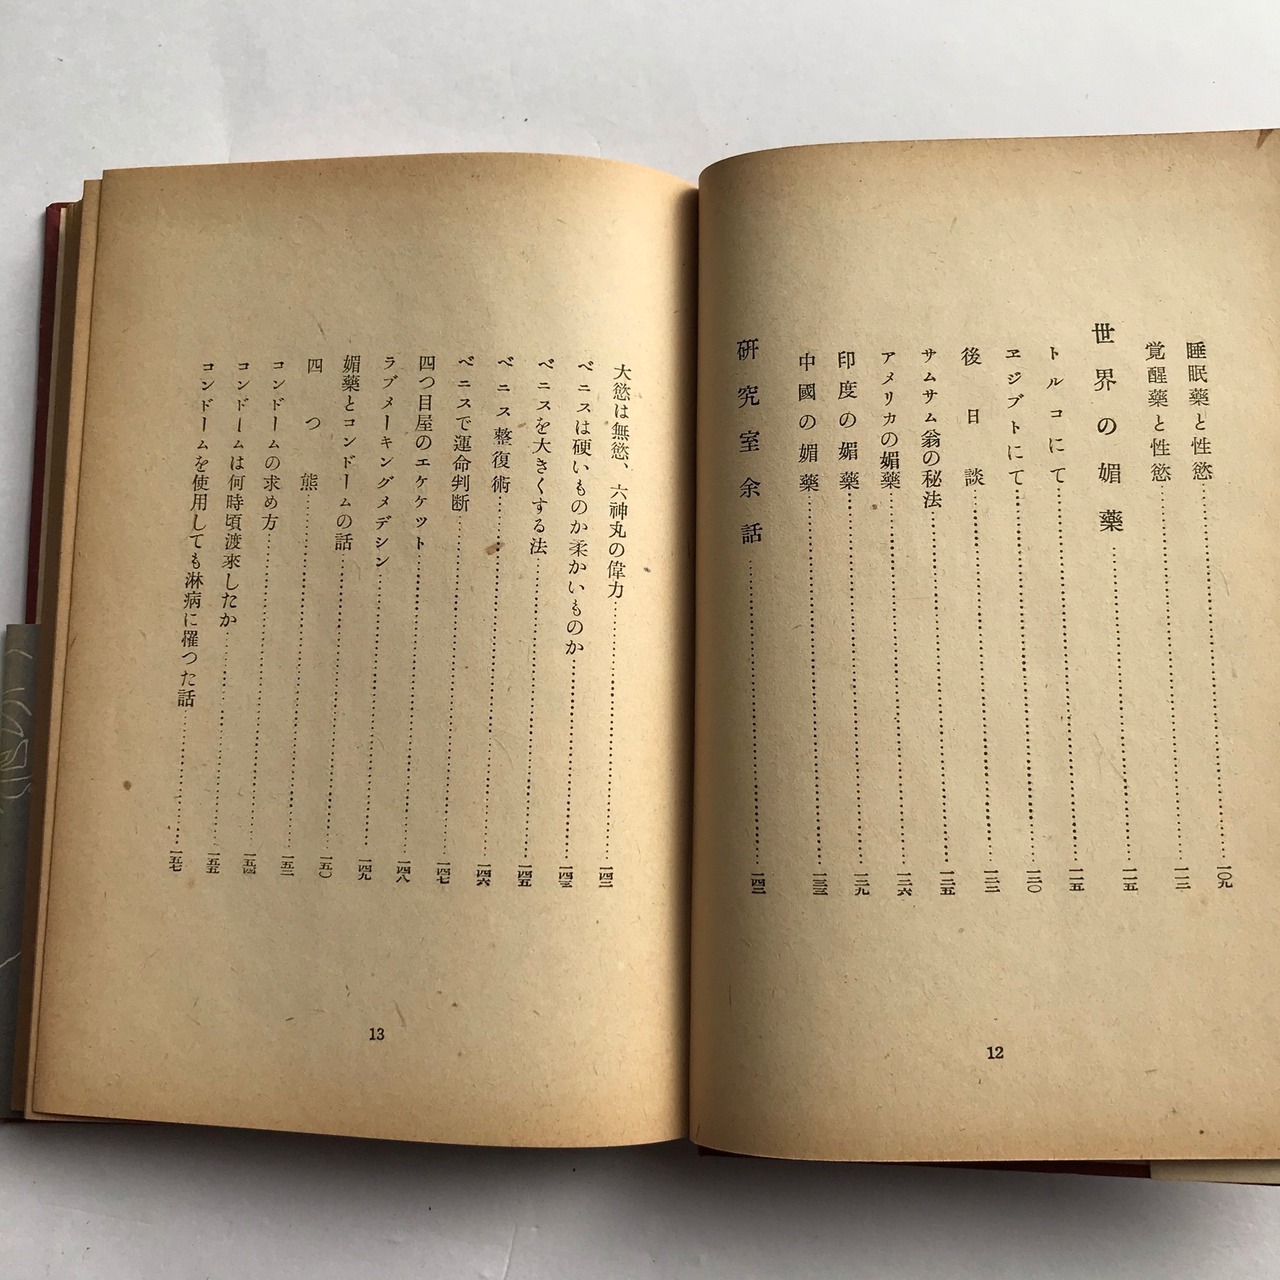 睡眠藥と性慾……一〇九
覚醒藥と性慾……一一二
世界の媚藥……一一五
トルコにて……一一五
ヱジプトにて……一二〇
後日談……一二二
サムサム翁の秘法……一二五
アメリカの媚藥……一二六
印度の媚藥……一二九
中國の媚藥……一三三
研究室余話……一四二
12
大慾は無慾、六神丸の偉力……一四二
ペニスは硬いものか柔かいものか……一四三
ペニスを大きくする法……一四五
ペニス整復術……一四六
ペニスで運命判断……一四七
四つ目屋のエケケツト……一四八
ラブメーキングメデシン……一四九
媚藥とコンドームの話……一五〇
四つ熊……一五二
コンドームの求め方……一五四
コンドームは何時頃渡來したか……一五五
コンドームを使用しても淋病に罹つた話……一五七
13